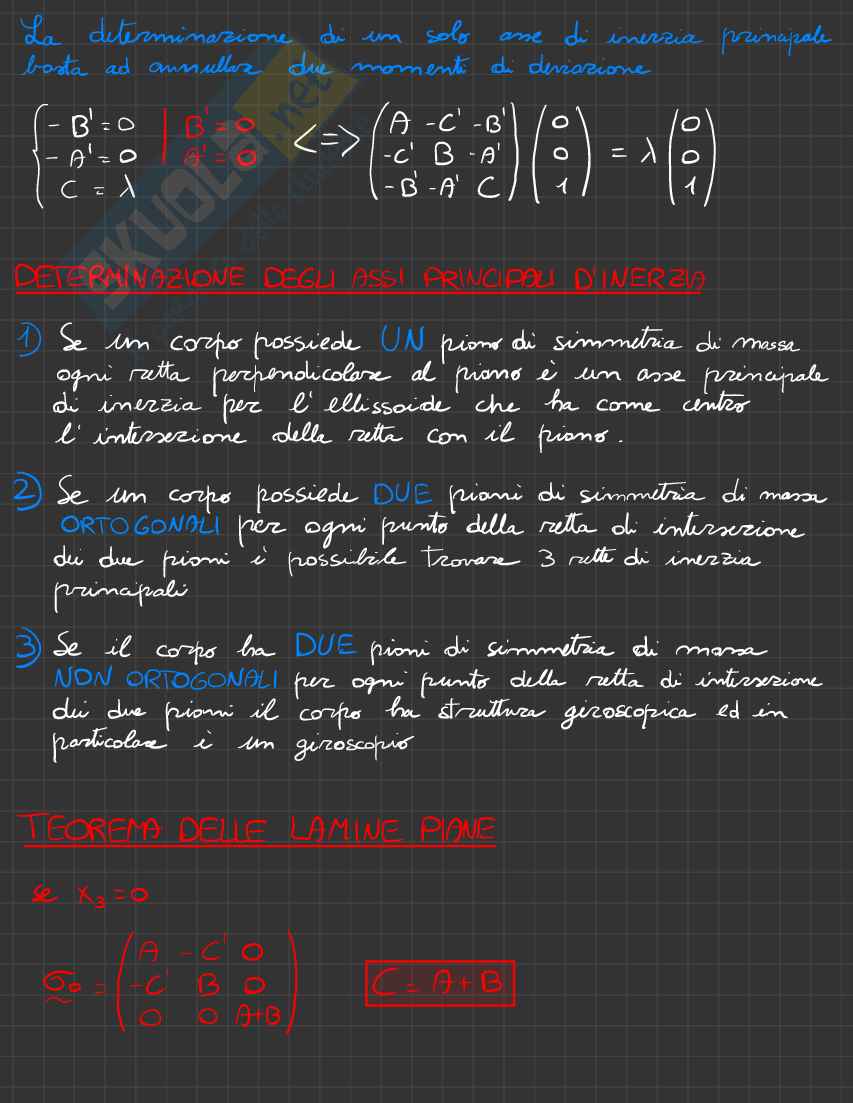 La determinazione di un solo asse di inerzia principale
basta ad annullare due momenti di deviazione
{ - B' = 0 | B' = 0 <=> ( A -C' -B' ) ( 0 ) = λ ( 0 )
{ - A' = 0 | A' = 0 ( -C' B -A' ) ( 0 ) ( 0 )
{ C = λ ( -B' -A' C ) ( 1 ) ( 1 )
SKUOLA.net
DETERMINAZIONE DEGLI ASSI PRINCIPALI D'INERZIA
1) Se un corpo possiede UN piano di simmetria di massa
ogni retta perpendicolare al piano è un asse principale
di inerzia per l'ellissoide che ha come centro
l'intersezione della retta con il piano.
2) Se un corpo possiede DUE piani di simmetria di massa
ORTOGONALI per ogni punto della retta di intersezione
dei due piani è possibile trovare 3 rette di inerzia
principali
3) Se il corpo ha DUE piani di simmetria di massa
NON ORTOGONALI per ogni punto della retta di intersezione
dei due piani il corpo ha struttura giroscopica ed in
particolare è un giroscopio
TEOREMA DELLE LAMINE PIANE
se x₃ = 0
σ₀ = ( A -C' 0 )
( -C' B 0 )
( 0 0 A+B )
C = A + B